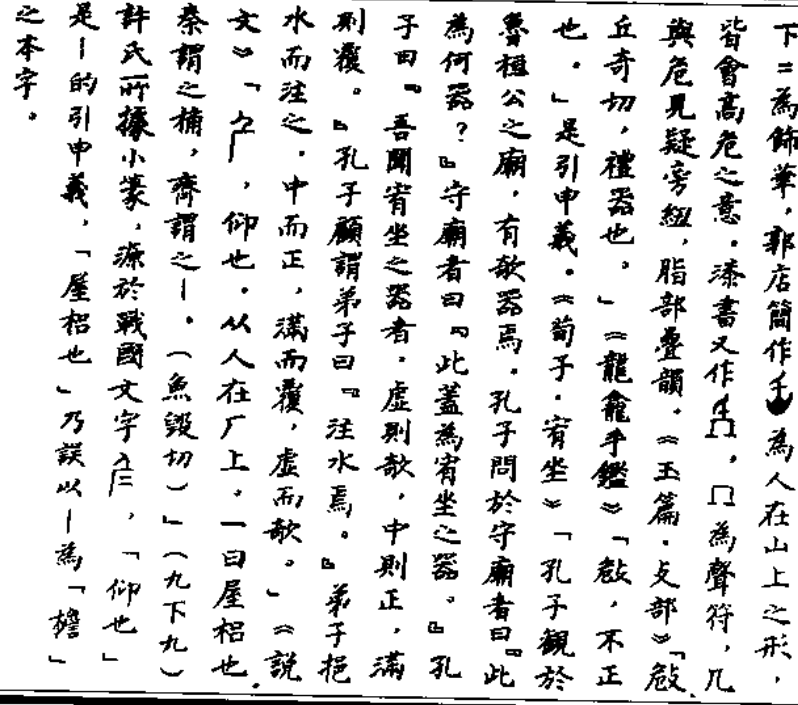 下二為飾筆，郭店簡作，為人在山上之形，
皆會高危之意。漆書又作，為聲符，几
與危見疑旁紐，脂部疊韻。《玉篇·攴部》「㩻，
丘奇切，禮器也。」《龍龕手鑑》「㩻，不正
也。」是引申義。《荀子·宥坐》「孔子觀於
魯桓公之廟，有欹器焉。孔子問於守廟者曰『此
為何器？』守廟者曰『此蓋為宥坐之器。』孔
子曰『吾聞宥坐之器者，虛則欹，中則正，滿
則覆。』孔子顧謂弟子曰『注水焉。』弟子挹
水而注之，中而正，滿而覆，虛而欹。」《說
文》「，仰也。从人在厂上。一曰屋梠也，
秦謂之楣，齊謂之｜。（魚毀切）」（九下九）
許氏所據小篆，源於戰國文字，「仰也」
是｜的引申義，「屋梠也」乃誤以｜為「檐」
之本字。